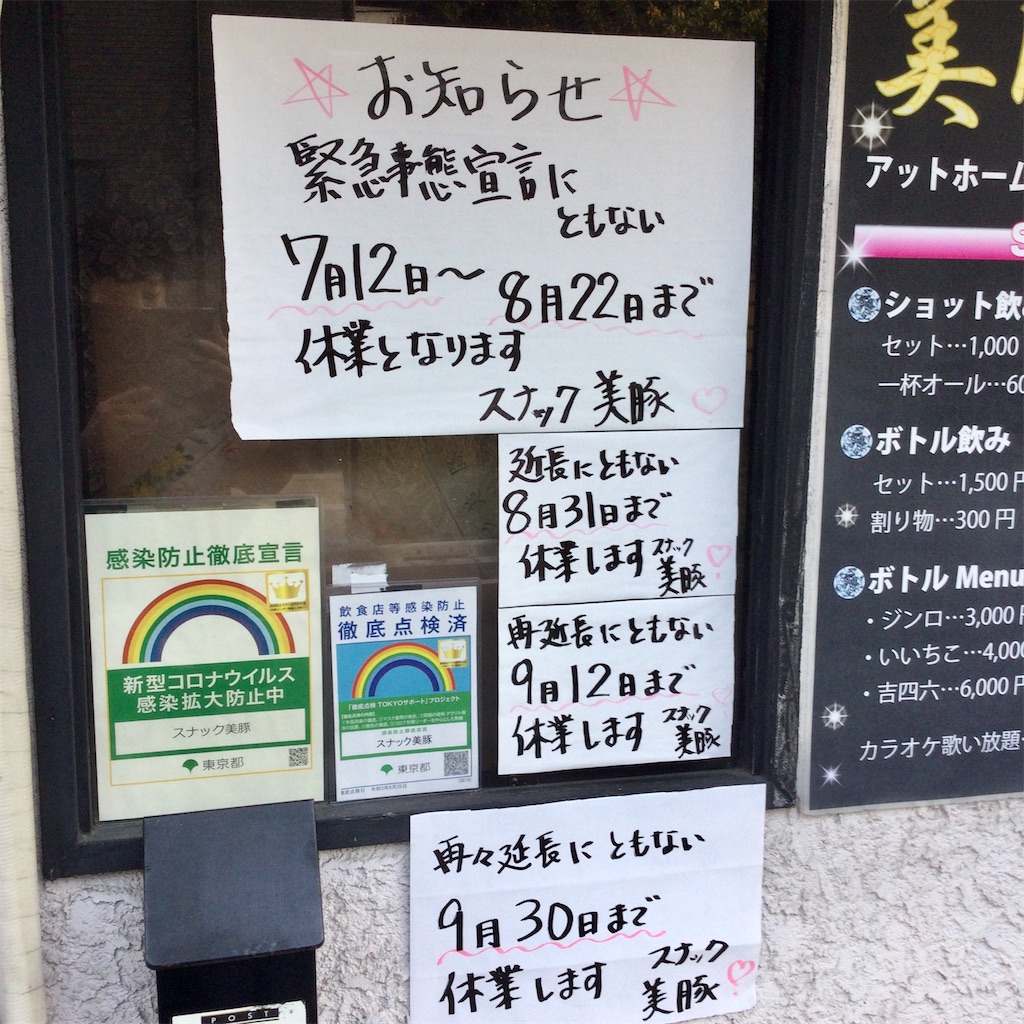 お知らせ
緊急事態宣言に
ともない
7月12日〜
8月22日まで
休業となります
スナック 美豚
延長にともない
8月31日まで
休業します スナック
美豚
再延長にともない
9月12日まで
休業します スナック
美豚
再々延長にともない
9月30日まで
休業します スナック
美豚
感染防止徹底宣言
新型コロナウイルス
感染拡大防止中
スナック美豚
東京都
飲食店等感染防止
徹底点検済
「徹底点検 TOKYOサポート」プロジェクト
スナック美豚
東京都
POST
美
アットホーム
S
ショット飲
セット…1,000
一杯オール…60
ボトル飲み
セット…1,500円
割り物…300円
ボトル Menu
・ジンロ…3,000円
・いいちこ…4,000
・吉四六…6,000円
カラオケ歌い放題